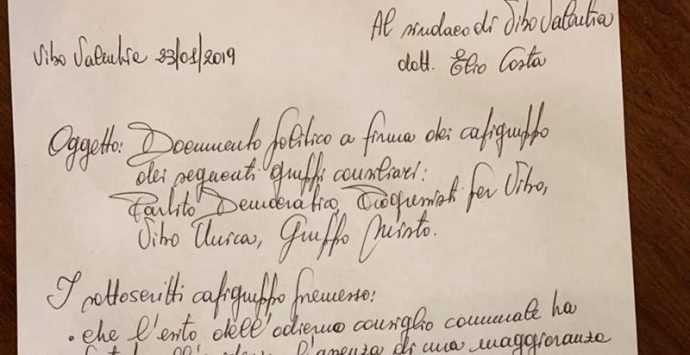 Al sindaco di Vibo Valentia
Vibo Valentia 23/01/2019
dott. Elio Costa
Oggetto: Documento politico a firma dei capigruppo
dei seguenti gruppi consiliari:
Partito Democratico, Progressisti per Vibo,
Vibo Unica, Gruppo Misto.
I sottoscritti capigruppo premesso:
• che l'esito dell'odierno consiglio comunale ha
l'assenza di una maggioranza